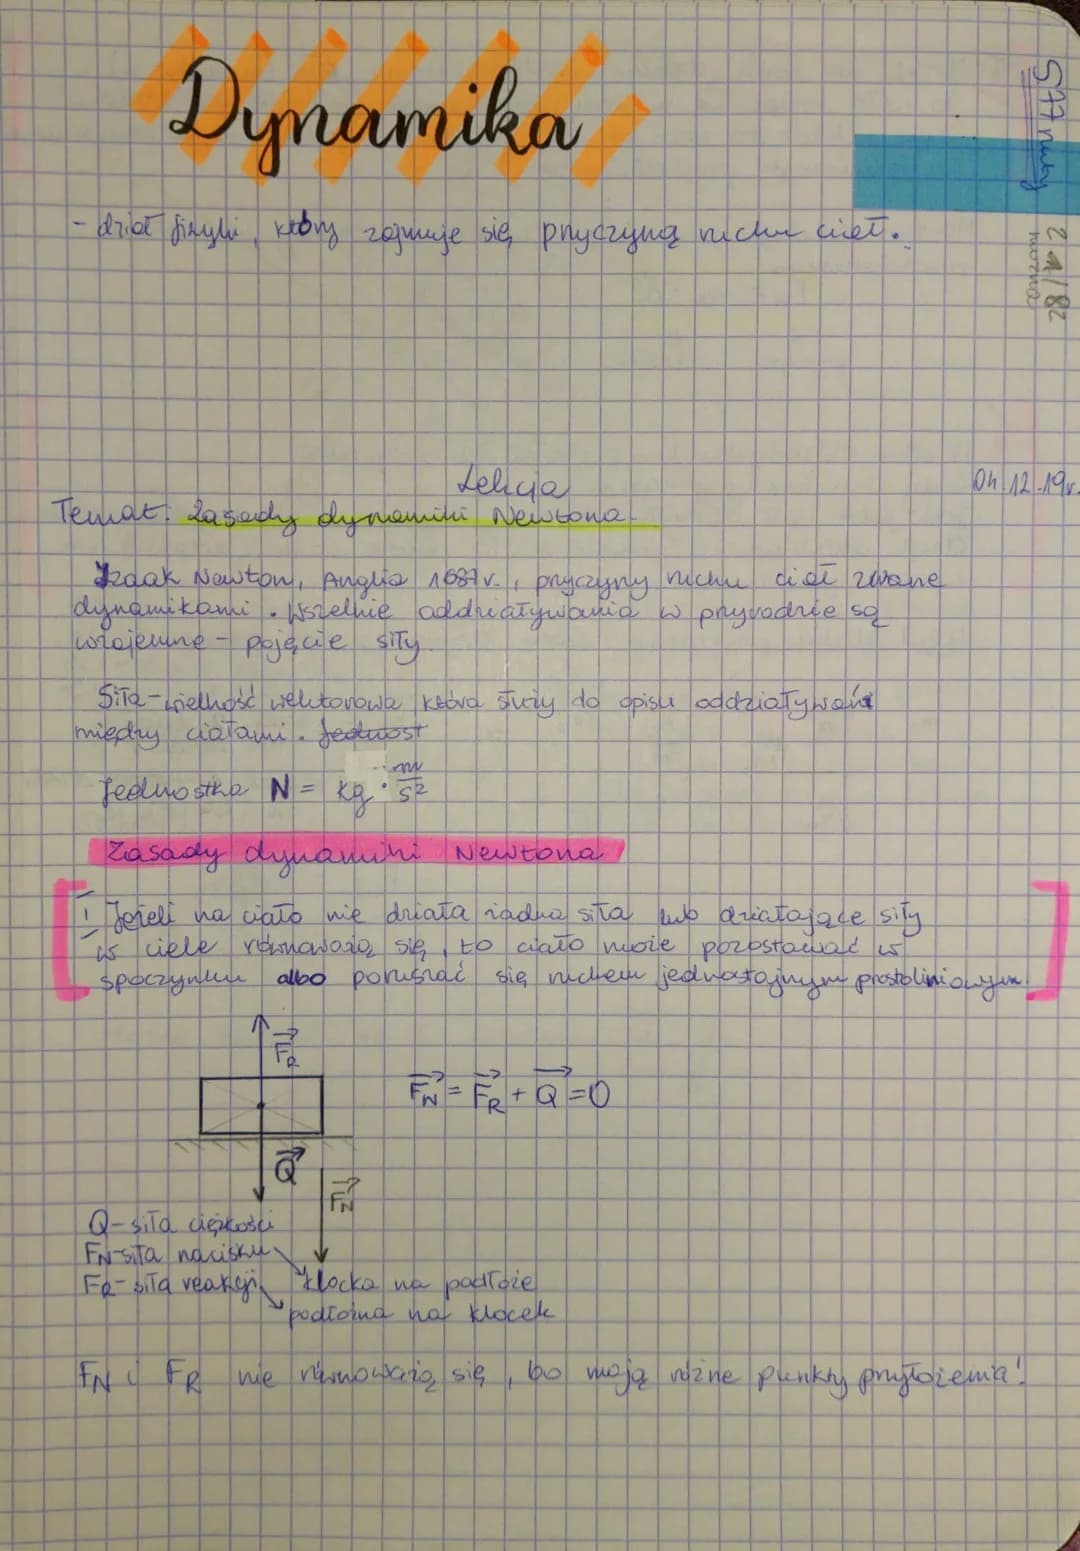 Dynamika
- dział fizyki, który zajmuje się przyczyną ruchu ciał.
Lekcja
04.12.19r.
Temat: Zasady dynamiki Newtona.
Izaak Newton, Anglia 1687r., przyczyny ruchu ciał zwane
dynamikami. Wszelkie oddziaływania w przyrodzie są
wzajemne - pojęcie siły.
Siła - wielkość wektorowa która służy do opisu oddziaływań
między ciałami. Jednost
Jednostka N = kg · m/s²
Zasady dynamiki Newtona
I Jeżeli na ciało nie działa żadna siła lub działające siły
w ciele równoważą się, to ciało może pozostawać w
spoczynku albo poruszać się ruchem jednostajnym prostoliniowym.
F_R
F_W = F_R + Q = 0
Q
F_N
Q - siła ciężkości
FN - siła nacisku
FR - siła reakcji klocka na podłoże
podłoża na klocek
FN i FR nie równoważą się, bo mają różne punkty przyłożenia!